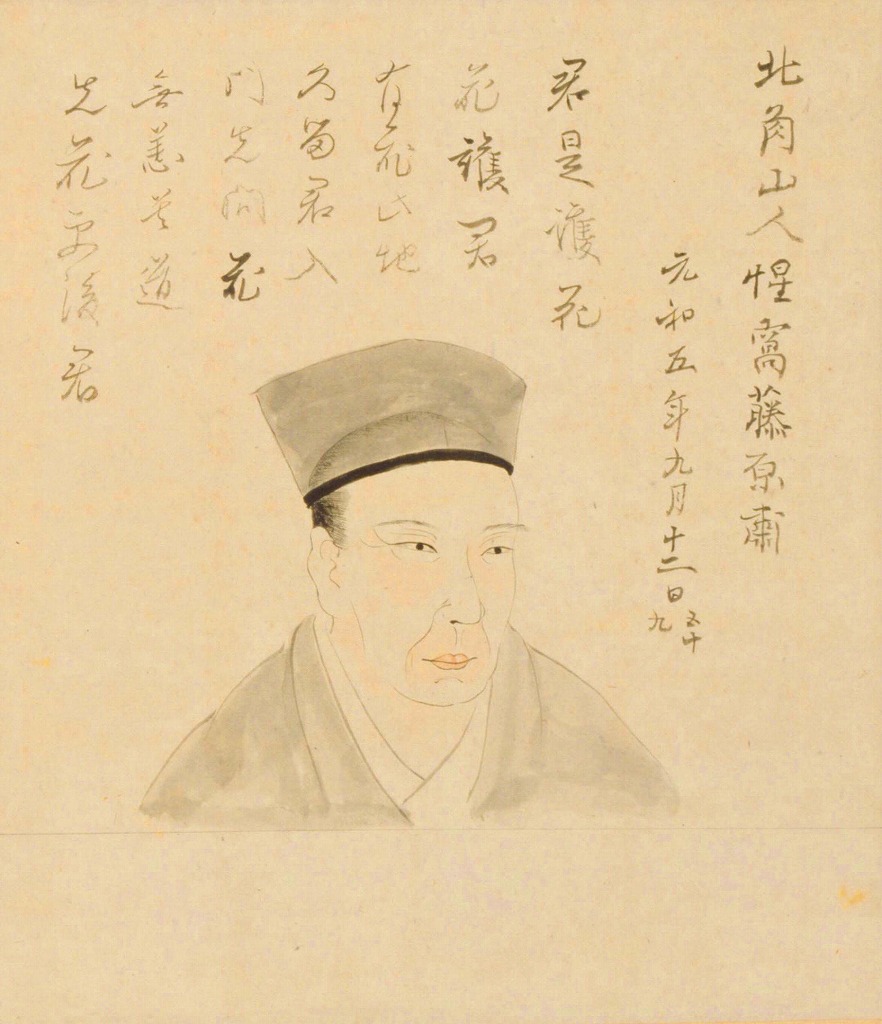 北肉山人惺窩藤原肅
元和五年九月十二日 五十九
君是護花
花護君
有花此地
久留君入
門先問花
無恙莫道
先花更後君